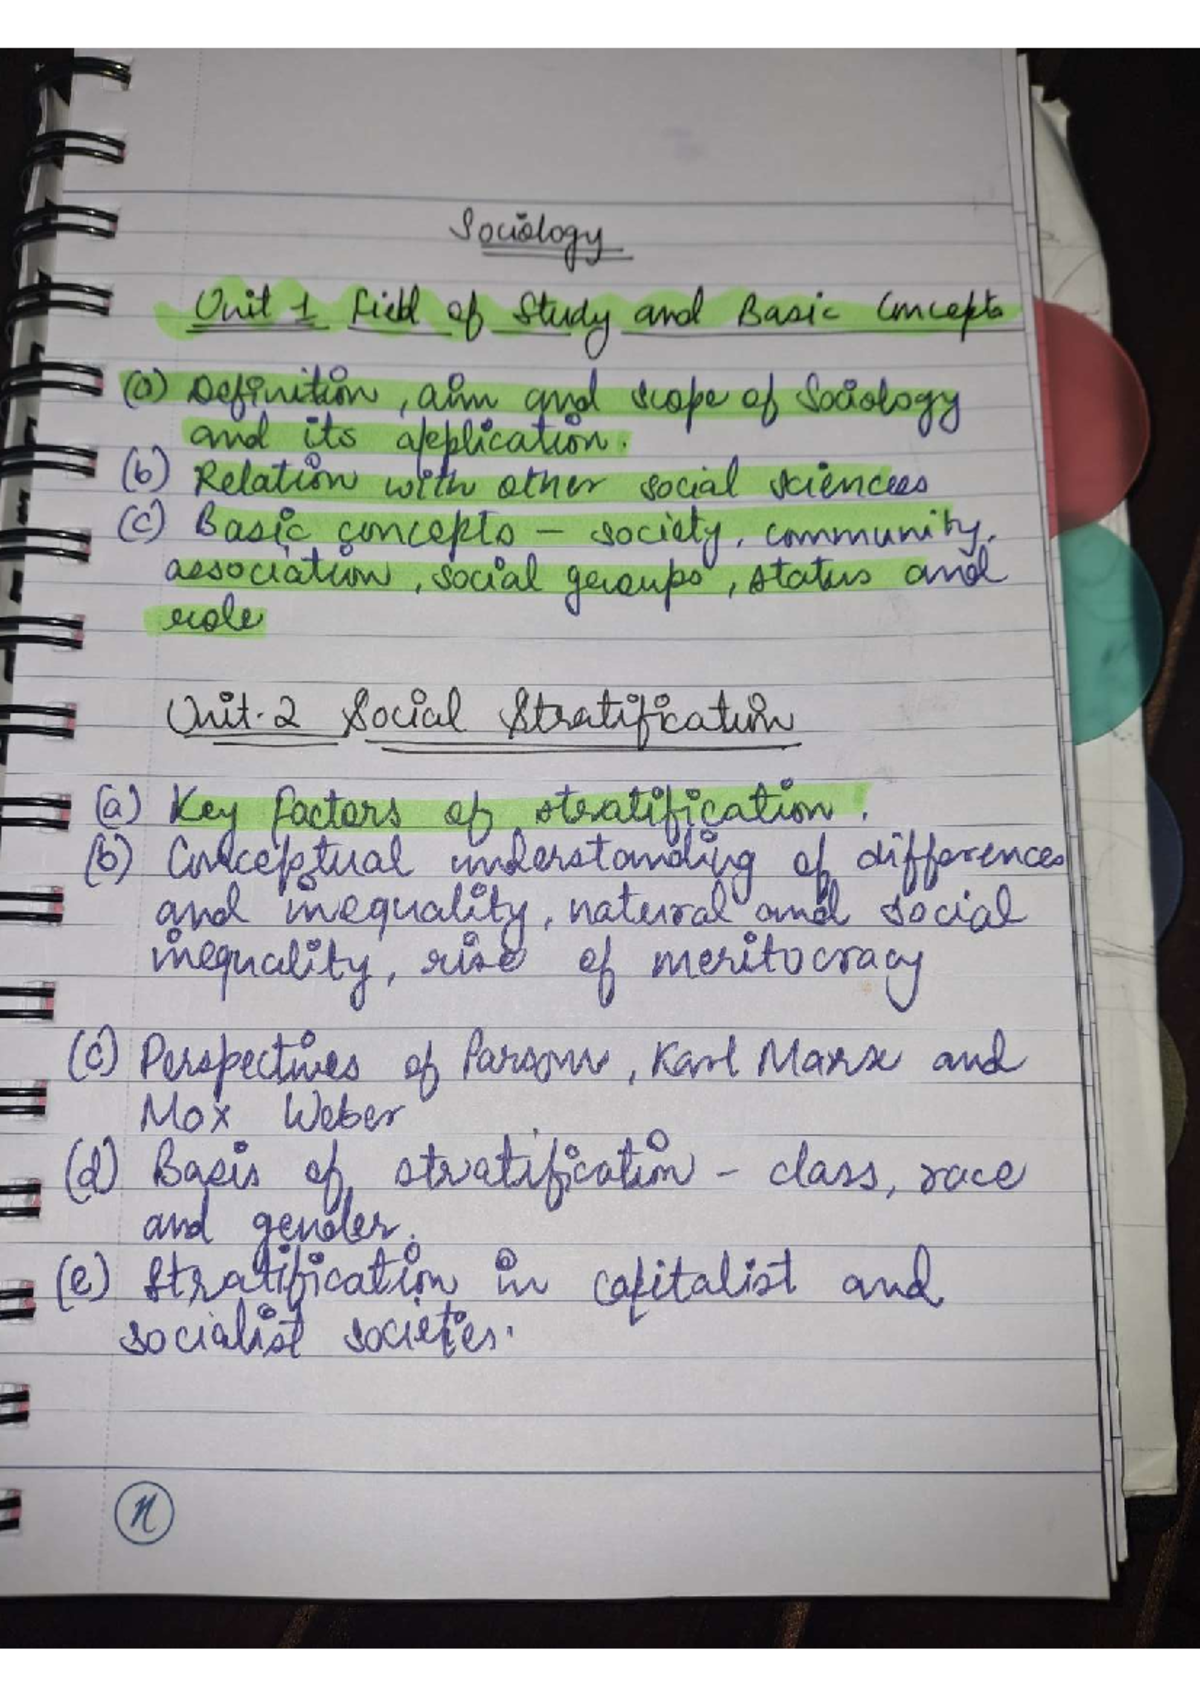 Sociology
Unit 1 Field of Study and Basic Concepts
(a) Definition, aim and scope of Sociology
and its application.
(b) Relation with other social sciences
(c) Basic concepts - society, community,
association, social groups, status and
role
Unit-2 Social Stratification
(a) Key factors of stratification.
(b) Conceptual understanding of differences
and inequality, natural and social
inequality, rise of meritocracy
(c) Perspectives of Parsons, Karl Marx and
Max Weber
(d) Basis of stratification - class, race
and gender.
(e) Stratification in capitalist and
socialist societies.
n